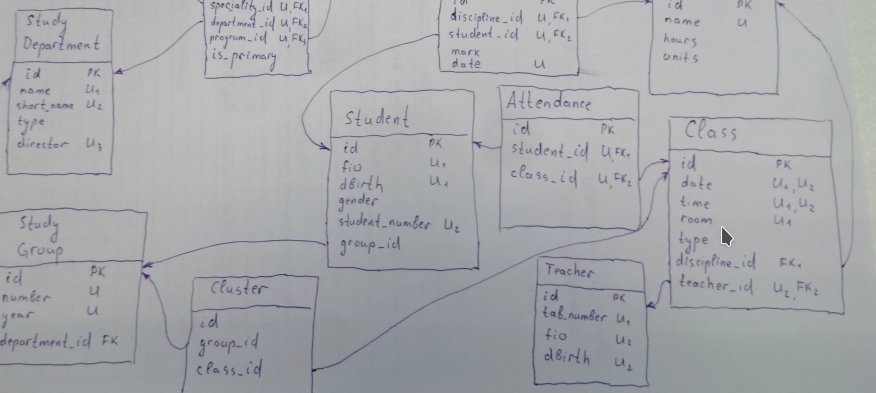 Study
Department
id PK
name U1
short_name U2
type
director U3
speciality_id U,FK1
department_id U,FK2
program_id U,FK3
is_primary
id PK
discipline_id U,FK1
student_id U,FK2
mark
date U
id PK
name U
hours
units
Student
id PK
fio U1
dBirth U1
gender
student_number U2
group_id
Attendance
id PK
student_id U,FK1
class_id U,FK2
Class
id PK
date U1,U2
time U1,U2
room U1
type
discipline_id FK1
teacher_id U2,FK2
Study
Group
id PK
number U
year U
department_id FK
Cluster
id
group_id
class_id
Teacher
id PK
tab_number U1
fio U2
dBirth U2